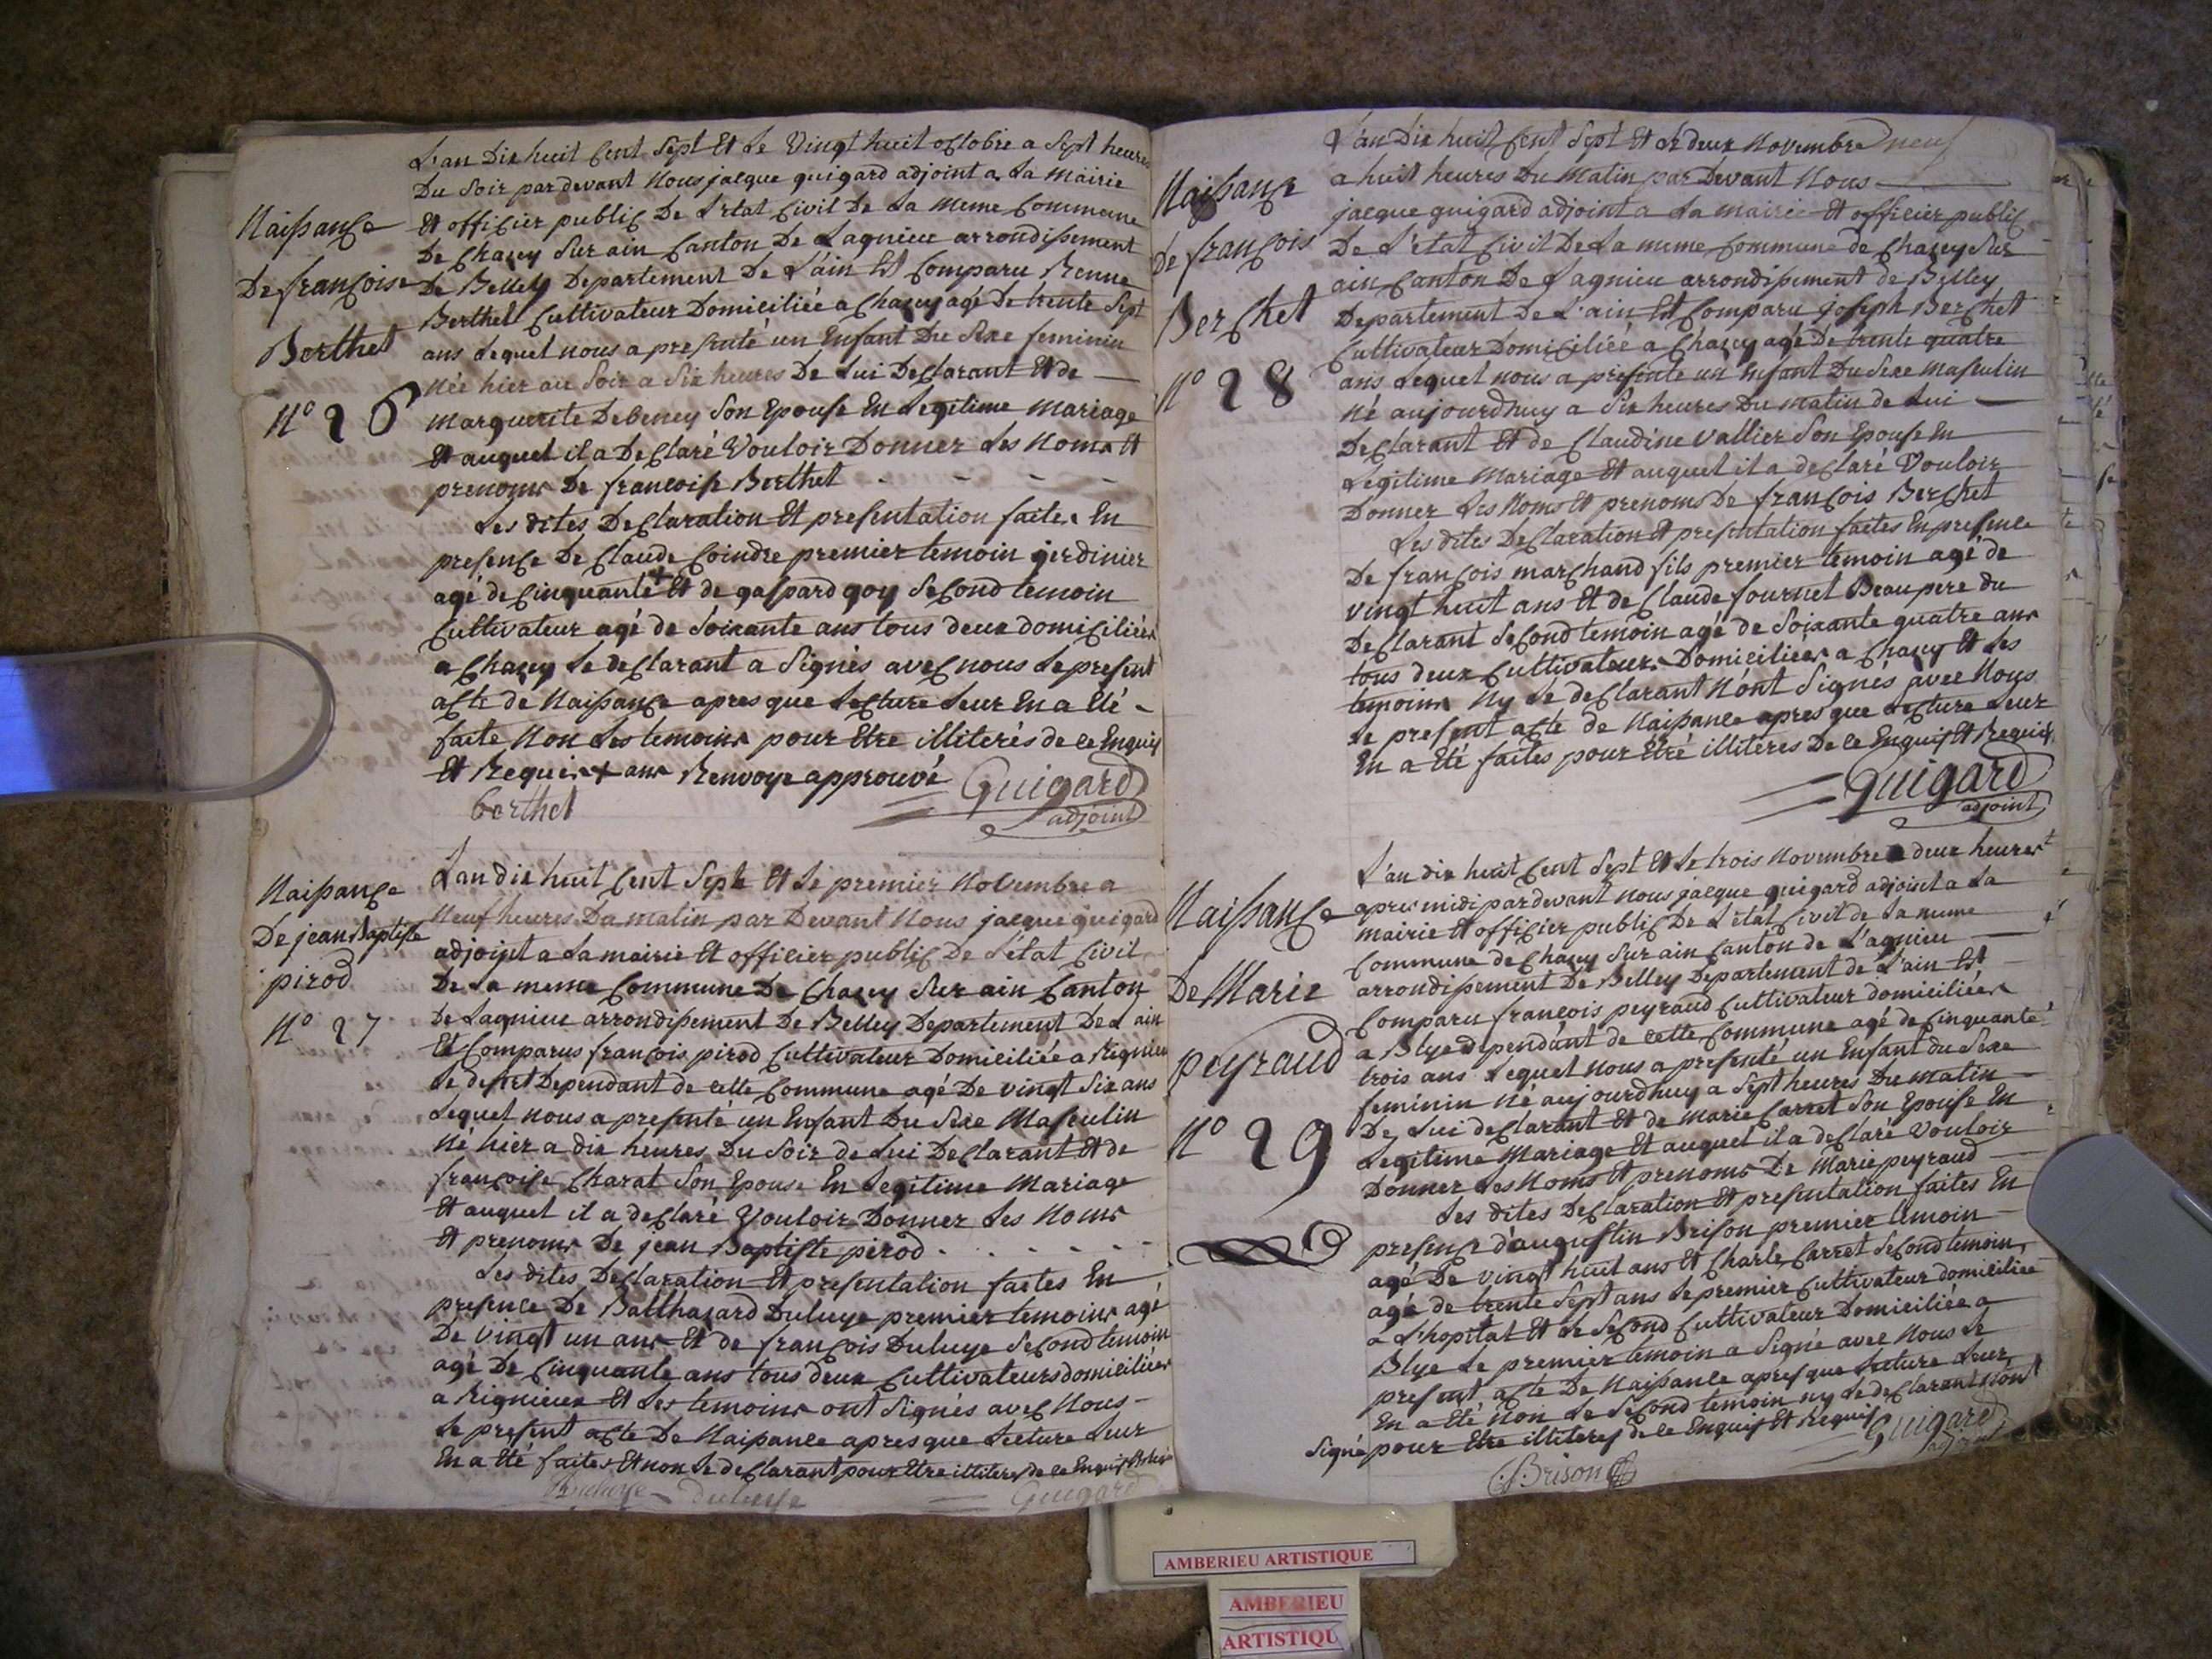 L'an Dix huit Cent Sept Et Le Vingt huit octobre a Sept heures
Du Soir pardevant Nous jacque guigard adjoint a La Mairie
Et officier public De L'etat Civil De La meme Commune
De Chazey Sur ain Canton De Lagnieu arrondissement
De Belley Departement De L'ain Est Comparu
Berthet Cultivateur Domiciliée a Chazey agé De trente Sept
ans Lequel nous a presenté un Enfant Du Sexe feminin
Née hier au Soir a Six heures De Lui Declarant Et de
Marguerite Debeney Son Epouse En Legitime Mariage
Et auquel il a Declaré Vouloir Donner Les Noms Et
prenoms De francoise Berthet
Naissance
De francoise
Berthet
N° 26
Les dites Declaration Et presentation faites En
presence De Claude Coindre premier temoin jerdinier
agé de Cinquante + Et de gaspard goy Second temoin
Cultivateur agé de Soixante ans tous deux domiciliés
a Chazey Le declarant a Signés avec nous Le present
acte de Naissance apres que Lecture Leur En a Eté
faite Non Les temoins pour Etre illiterés de ce Enquis
Et Requis + ans Renvoye approuvé
Guigard
adjoint
berthet
Naissance
De jean Baptiste
pirod
N° 27
L'an dix huit Cent Sept Et Le premier Novembre a
Neuf heures Du matin par Devant Nous jacque guigard
adjoint a La mairie Et officier public De L'état Civil
De La meme Commune De Chazey Sur ain Canton
De Lagnieu arrondissement De Belley Departement De L'ain
Est Comparus francois pirod Cultivateur Domiciliée a Rignieu
Le desert Dependant de cette Commune agé De vingt Six ans
Lequel nous a presenté un Enfant Du Sexe Masculin
Né hier a dix heures Du Soir de Lui Declarant Et de
francoise Charat Son Epouse En Legitime Mariage
Et auquel il a declaré Vouloir Donner Les Noms
Et prenoms De jean Baptiste pirod
Les dites Declaration Et presentation faites En
presence De Balthazard Duluye premier temoins agé
De vingt un ans Et de francois Duluye Second temoin
agé De Cinquante ans tous deux Cultivateurs domiciliés
a Rignieux Et Les temoins ont Signés avec Nous
Le present acte De Naissance apres que Lecture Leur
En a Eté faites Et non Le declarant pour Etre illiteres de ce Enquis
Duluye Duluye Guigard
L'an Dix huit Cent Sept Et Le deux Novembre neuf
a huit heures Du Matin par Devant Nous
jacque guigard adjoint a La mairie Et officier public
De L'etat Civil De La meme Commune de Chazey Sur
ain Canton De Lagnieu arrondissement de Belley
Departement De L'ain Est Comparu joseph Berchet
Cultivateur Domiciliée a Chazey agé De trente quatre
ans Lequel nous a presenté un Enfant Du Sexe Masculin
Né aujourdhuy a Six heures Du matin de Lui
Declarant Et de Claudine Vallier Son Epouse En
Legitime Mariage Et auquel il a declaré Vouloir
Donner Les Noms Et prenoms De francois Berchet
Naissance
De francois
Berchet
N° 28
Les dites Declaration Et presentation faites En presence
De francois marchand fils premier temoin agé de
vingt huit ans Et de Claude fournet Beaupere du
Declarant Second temoin agé de Soixante quatre ans
tous deux Cultivateurs Domiciliés a Chazey Et Les
temoins Ny Le declarant N'ont Signés avec Nous
Le present acte de Naissance apres que Lecture Leur
En a Eté faites pour Etre illiteres De ce Enquis Et Requis
Guigard
adjoint
Naissance
De Marie
peyraud
N° 29
L'an dix huit Cent Sept Et Le trois Novembre a deux heures
apres midi pardevant nous jacque guigard adjoint a La
mairie Et officier public De L'état Civil de La meme
Commune de Chazey Sur ain Canton de Lagnieu
arrondissement De Belley Departement de L'ain Est
Comparu francois peyraud Cultivateur domiciliée
a Blye dependant de cette Commune agé de Cinquante
trois ans Lequel nous a presenté un Enfant du Sexe
feminin Né aujourdhuy a Sept heures Du matin
De Lui declarant Et de Marie Carret Son Epouse En
Legitime Mariage Et auquel il a declaré Vouloir
Donner Les Noms Et prenoms De Marie peyraud
Les dites Declaration Et presentation faites En
presence d'augustin Brison premier temoin
agé De vingt huit ans Et Charle Carret Second temoin
agé de trente Sept ans Le premier Cultivateur domiciliée
a L'hopital Et Le Second Cultivateur Domiciliée a
Blye Le premier temoin a Signé avec Nous Le
present acte De Naissance apres que Lecture Leur
En a Eté Non Le Second temoin ny Le declarant N'ont
Signé pour Etre illiteres de ce Enquis Et Requis
Guigard
adjoint
Brison
AMBERIEU ARTISTIQUE
AMBERIEU
ARTISTIQU